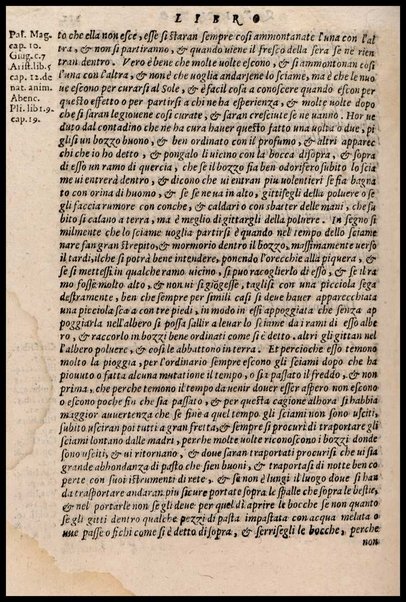 LIBRO
Pas. Mag.
cap. 10.
Giug. c. 7
Arist. lib. 5
cap. 12. de
nat. anim.
Abenc.
Pli. lib. 1 9.
cap. 19.
to che ella non esce, esse si staran sempre cosi ammontanate l'una con l'al
tra, & non si partiranno, & quando uiene il fresco della sera se ne rien
tran dentro. Vero è bene che molte uolte escono, & si ammontonan cosi
l'una con l'altra, & non è che uoglia andarsene lo sciame, ma è che le nuo
ue escono per curarsi al Sole, & è facil cosa a conoscere quando escon per
questo effetto o per partirsi a chi ne ha esperienza, & molte uolte dopo
che si saran legiouene cosi curate, & saran cresciute se ne uanno. Hor ue
duto dal contadino che ne ha cura hauer questo fatto una uolta o due, pi
glisi un bozzo buono, & ben ordinato con il profumo, & altri apparec
chi che io ho detto, & pongalo li uicino con la bocca disopra, & sopra
di esso un ramo di quercia, che se il bozzo fia ben odorifero subito lo scia
me ui entrerà dentro, & dicono che ui entran piu uolentieri se fia bagna
to con orina di huomo, & se se ne ua in alto, gittisegli della poluere o se
gli faccia rumore con conche, & caldari o con sbatter delle mani, che su
bito si calano a terra, ma è meglio di gittargli della poluere. In segno si
milmente che lo sciame uoglia partirsi è quando nel tempo dello sciame
nare fan gran strepito, & mormorio dentro il bozzo, massimamente uerso
il tardi, ilche si potrà bene intendere, ponendo l'orecchie alla piquera, &
se si mettessi in qualche ramo uicino, si puo raccoglierlo di esso, & se il ra
mo fosse molto alto, & non ui si giōgesse, taglisi con una picciola sega
destramente, ben che sempre per simili casi si deue hauer apparecchiata
una picciola scala con tre piedi, in modo in essi appoggiata che senza ap
poggiarla nell'albero si possa sallir a leuar lo sciame da i rami di esso albe
ro, & raccorlo in bozzi bene ordinati come si è detto, altri gli gittan nel
l'albero poluere, & cosi le abbattono in terra. Et percioche esso temono
molto la pioggia, per l'ordinario sempre escono gli sciami dopo che ha
piouuto o fatta alcuna mutatione il tempo, o si è passato il freddo, & non
prima, che perche temono il tempo da uenir douer esser aspero non escono
o escono poche fin che sia passato, & per questa cagione alhora si habbia
maggior auuertenza che se fin'e a quel tempo gli sciami non sono usciti,
subito usciran poi tutti a gran fretta, & sempre si procuri di traportare gli
sciami lontano dalle madri, perche molte uolte riconoscono i bozzi donde
sono usciti, & ui ritornano, & doue saran traportati procurisi che ui sia
grande abbondanza di pasto che sien buoni, & traportasi di notte ben co
perte con suoi istrumenti di rete, & se non è lungi il luogo doue si han
da trasportare andaran piu sicure portate sopra le spalle che sopra le bestie,
& nel portarle non se gli deue per quel dì aprire le bocche se non quanto
se gli gitti dentro qualche pezzi di pasta impastata con acqua melata o
uue passe o fichi come si è detto disopra, & serrisegli le bocche, perche
non